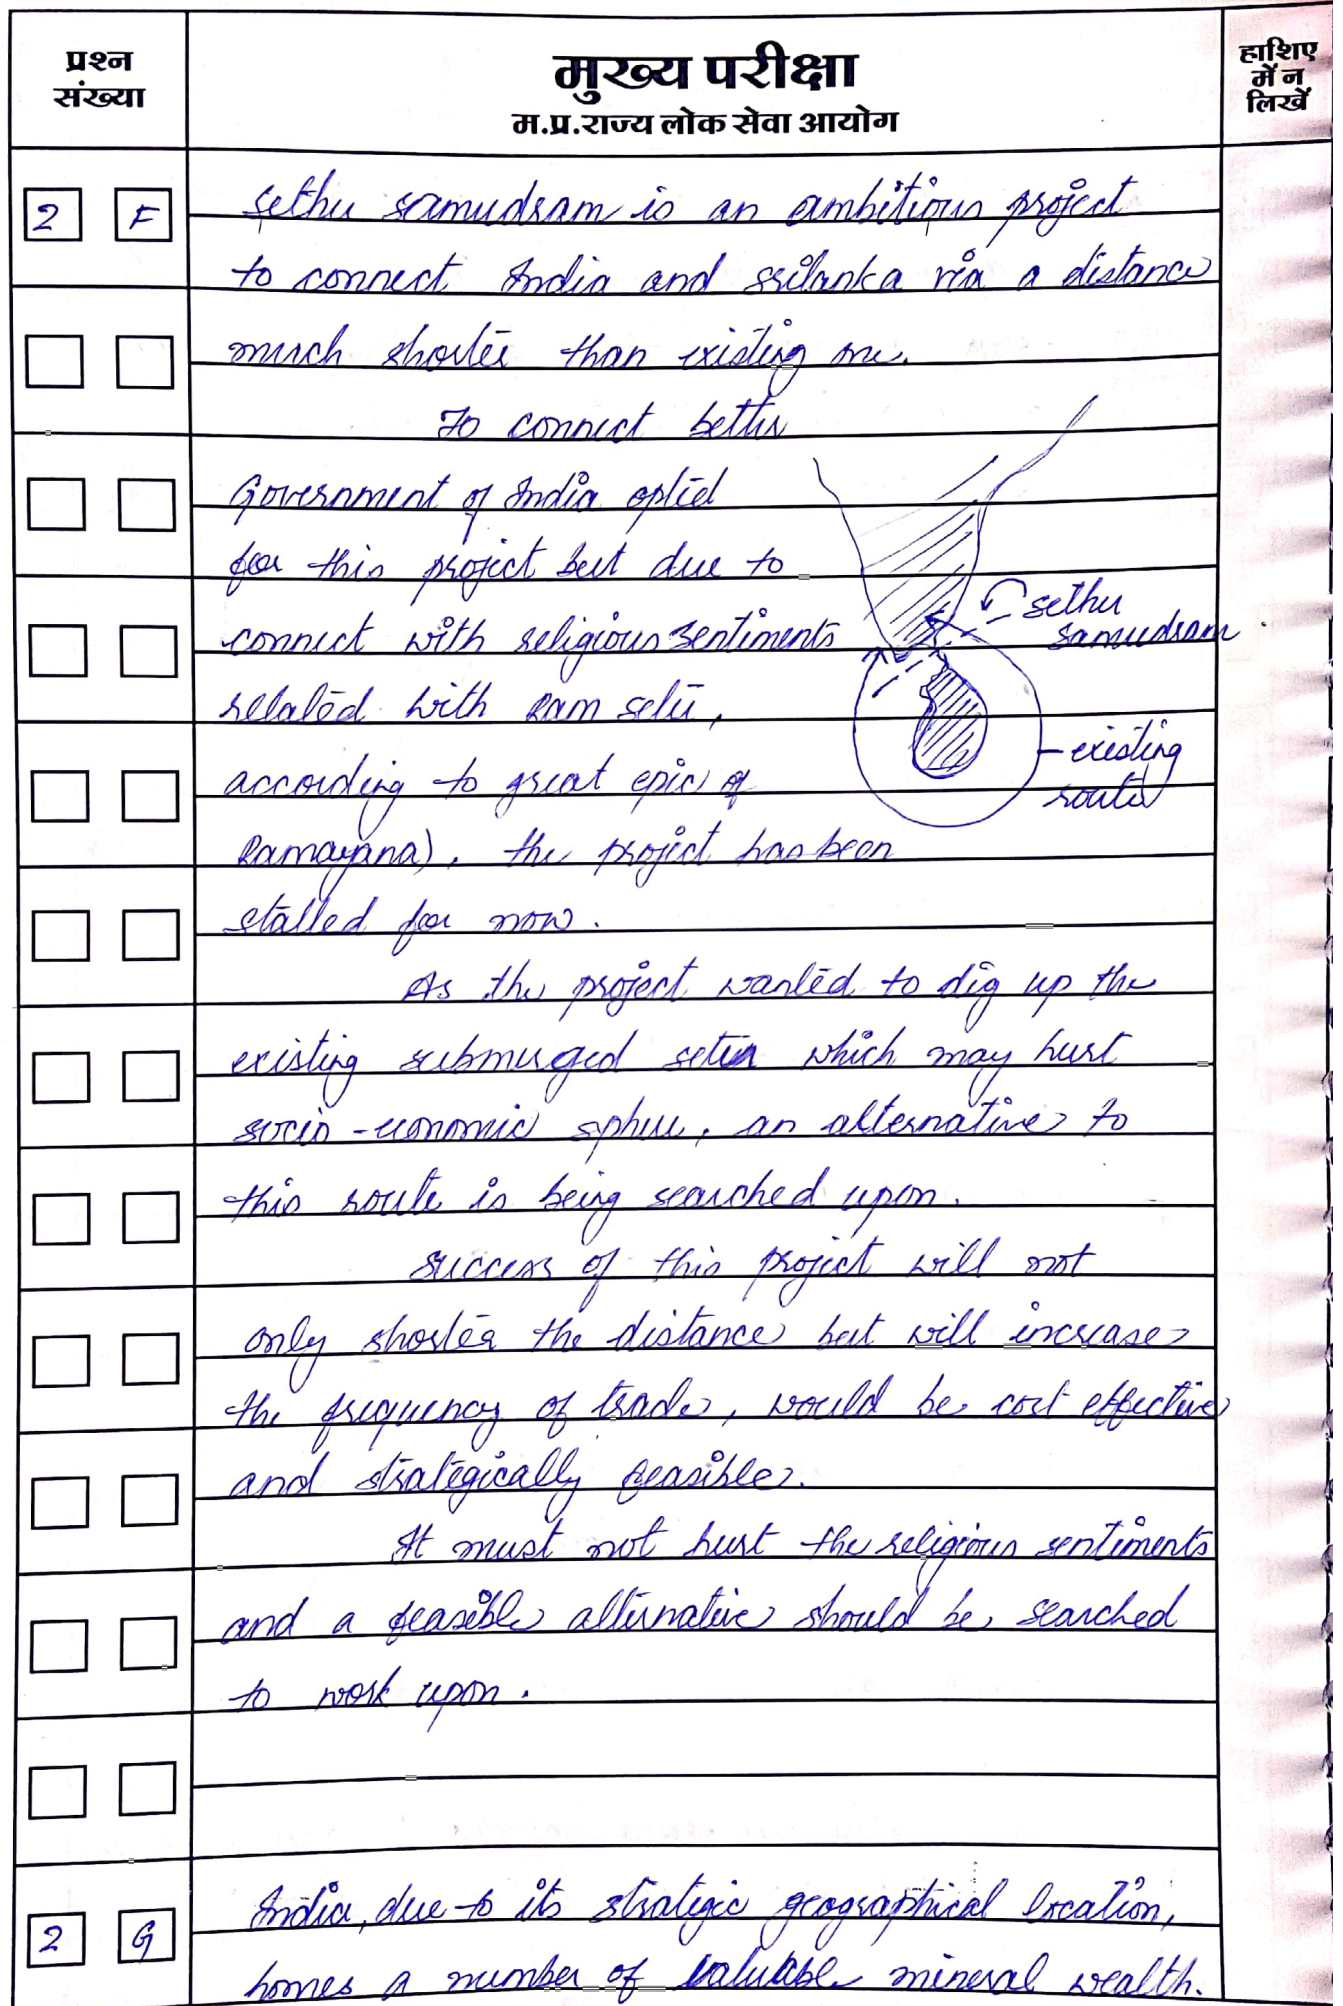 प्रश्न
संख्या
मुख्य परीक्षा
म.प्र.राज्य लोक सेवा आयोग
हाशिए
में न
लिखें
2 F
Sethu samudram is an ambitious project
to connect India and srilanka via a distance
much shorter than existing one.
To connect better
Government of India opted
for this project but due to
connect with religious sentiments
related with Ram setu,
according to great epic of
Ramayana), the project has been
stalled for now.
sethu
samudram
existing
route
As the project wanted to dig up the
existing submerged setu which may hurt
socio-economic sphere, an alternative to
this route is being searched upon.
success of this project will not
only shorter the distance but will increase
the frequency of trade, would be cost effective
and strategically feasible.
It must not hurt the religious sentiments
and a feasible alternative should be searched
to work upon.
2 G
India, due to its strategic geographical location,
homes a number of valuable mineral wealth.